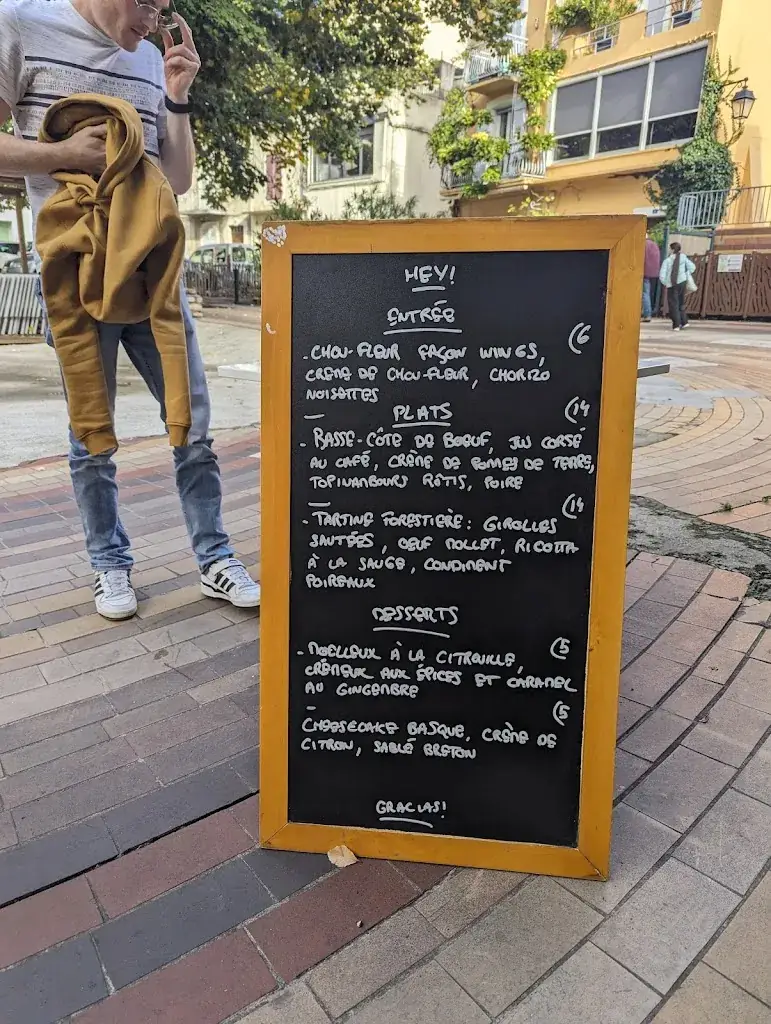 HEY!
ENTRÉE
- CHOU-FLEUR FAÇON WINGS, (6
CRÈME DE CHOU-FLEUR, CHORIZO
NOISETTES
PLATS (14
- BASSE-CÔTE DE BOEUF, JUS CORSÉ
AU CAFÉ, CRÈME DE POMMES DE TERRE,
TOPINAMBOURS RÔTIS, POIRE
(14
- TARTINE FORESTIÈRE : GIROLLES
SAUTÉES, OEUF MOLLET, RICOTTA
À LA SAUGE, CONDIMENT
POIREAUX
DESSERTS
- MOELLEUX À LA CITROUILLE, (5
CRÉMEUX AUX ÉPICES ET CARAMEL
AU GINGEMBRE
(5
CHEESECAKE BASQUE, CRÈME DE
CITRON, SABLÉ BRETON
GRACIAS!